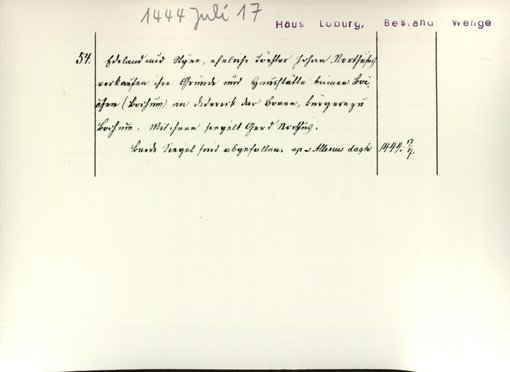 1444 Juli 17
Haus Loburg, Bestand Wenge
54. Edeland und Styne, eheliche Töchter Johan Northues
verkaufen ihre Gründe und Hausstätte binnen Boi-
chem (Bochum) an Diderick der Bonen, bürgere zu
Bochum. Mit ihnen siegelt Gerd Northus.
Beide Siegel sind abgefallen. up s. Allexius dagh 1444. 17/7.